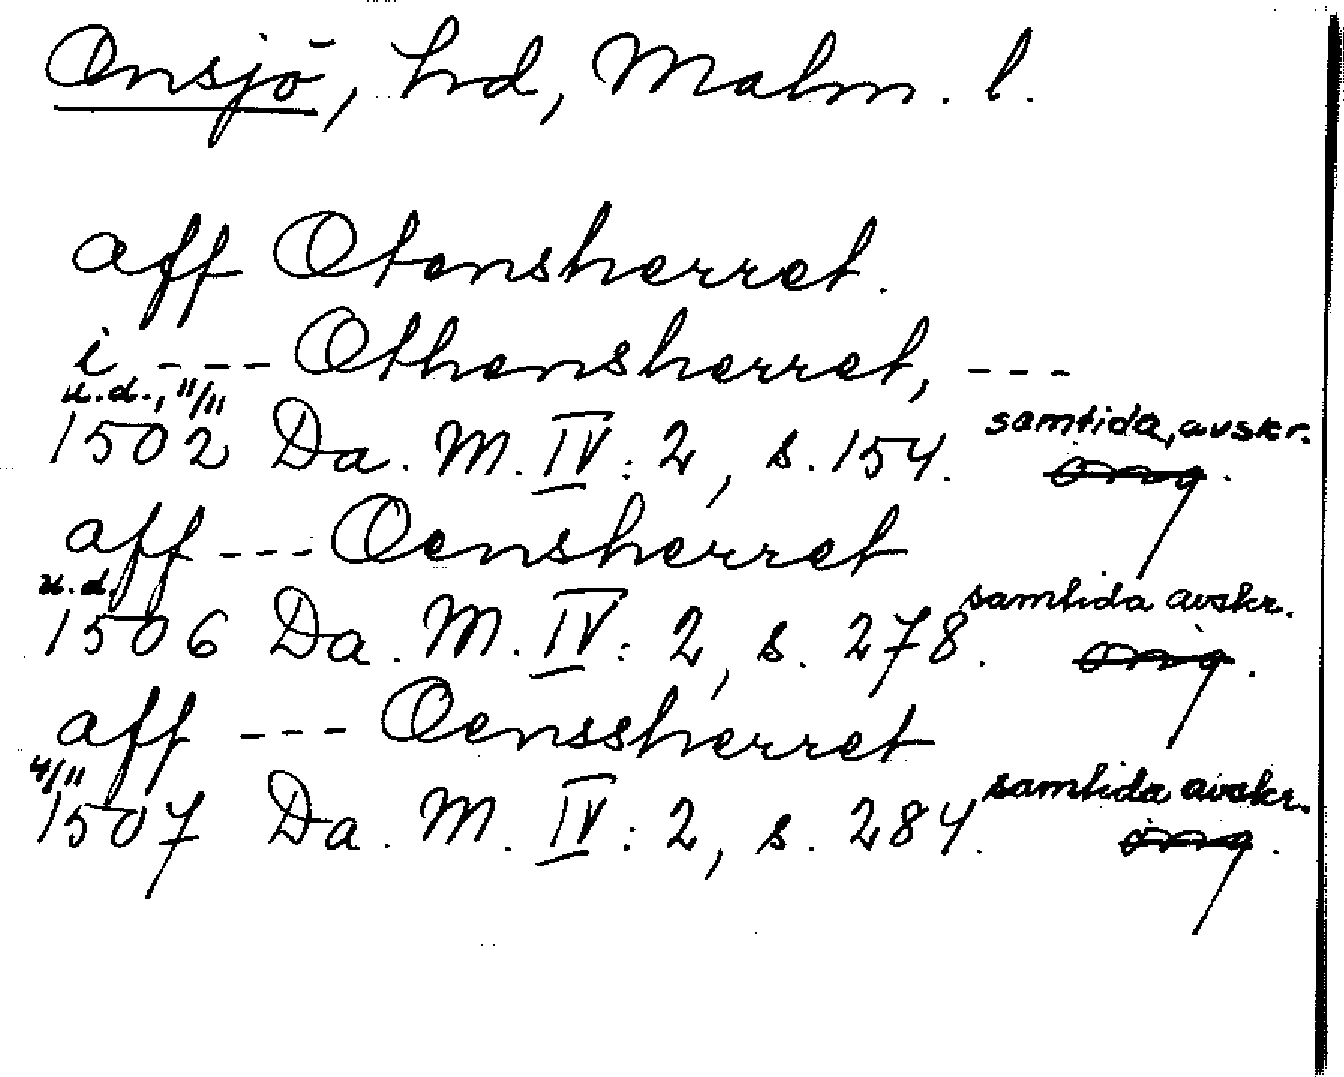 Onsjö, hd, Malm. l.
aff Otensherret.
i --- Othensherret, ---
u.d., 11/11
1502 Da. M. IV: 2, s. 154. samtida avskr.
aff --- Oensherret
u.d.
1506 Da. M. IV: 2, s. 278. samtida avskr.
aff --- Oenssherret
4/11
1507 Da. M. IV: 2, s. 284. samtida avskr.